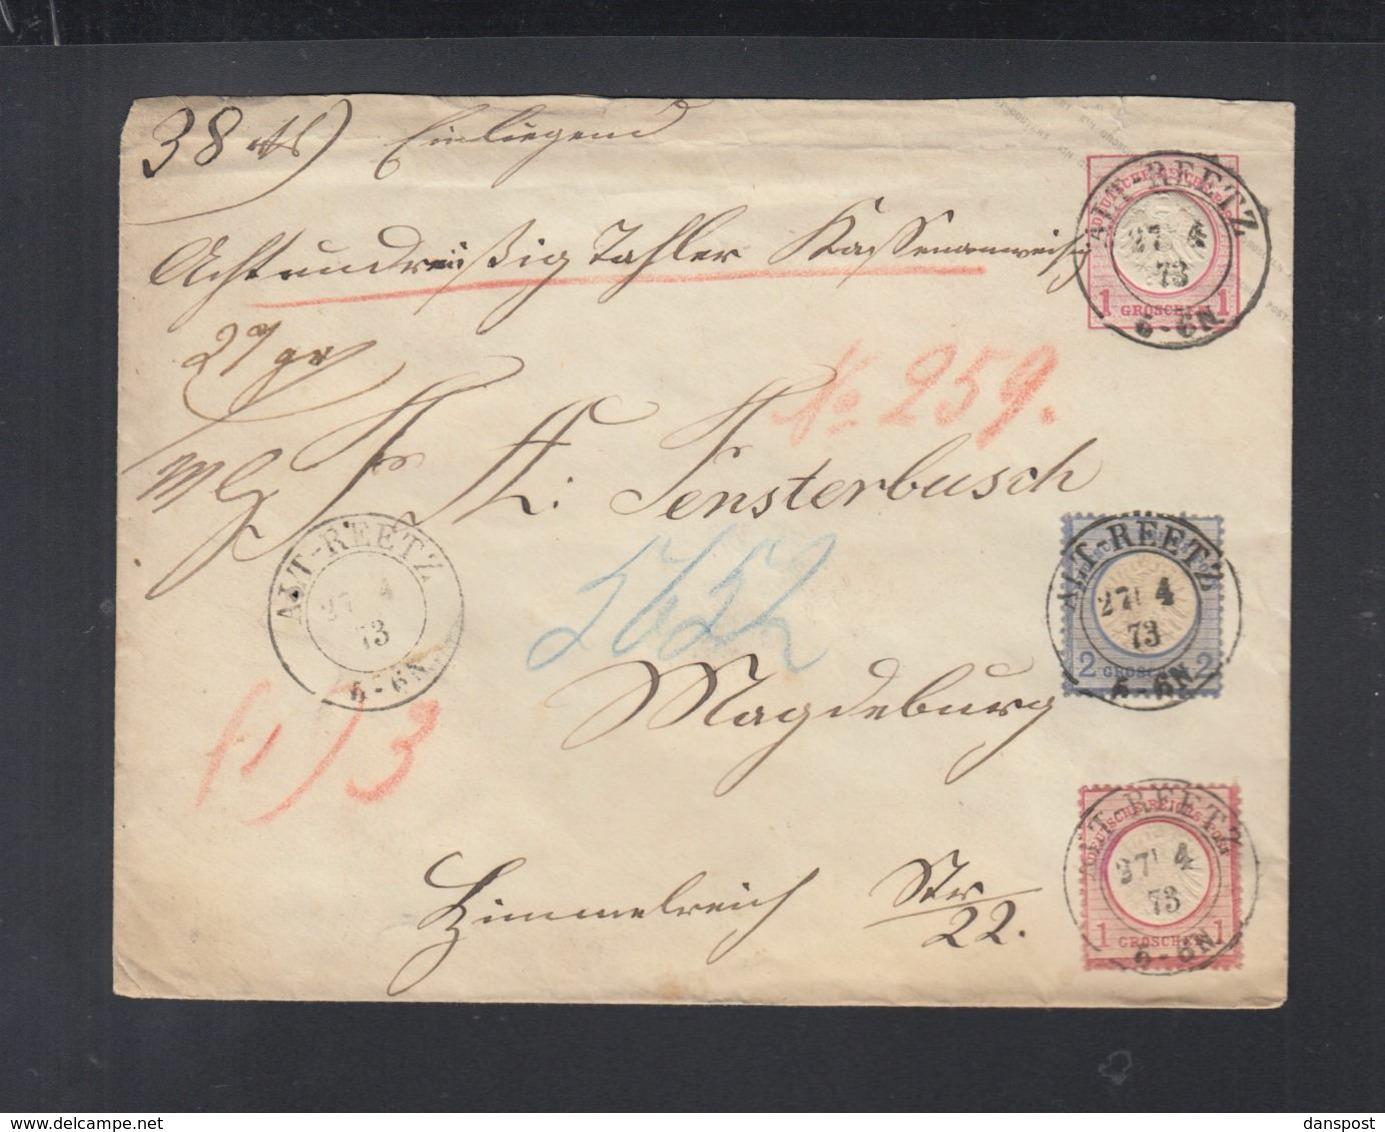 38 rth) Einliegend
Achtundreißig Tahler Kassenanweisg
27 gr
ALT-REETZ
27 4
73
5-6N
DEUTSCHE REICHS-POST
1 GROSCHEN 1
No 259.
H. Fensterbusch
5652
ALT-REETZ
27 4
73
5-6N
ALT-REETZ
27 4
73
5-6N
2 GROSCHEN 2
Magdeburg
3
Himmelreich Str
22.
ALT-REETZ
27 4
73
5-6N
DEUTSCHE REICHS-POST
1 GROSCHEN 1
delcampe.net
danspost